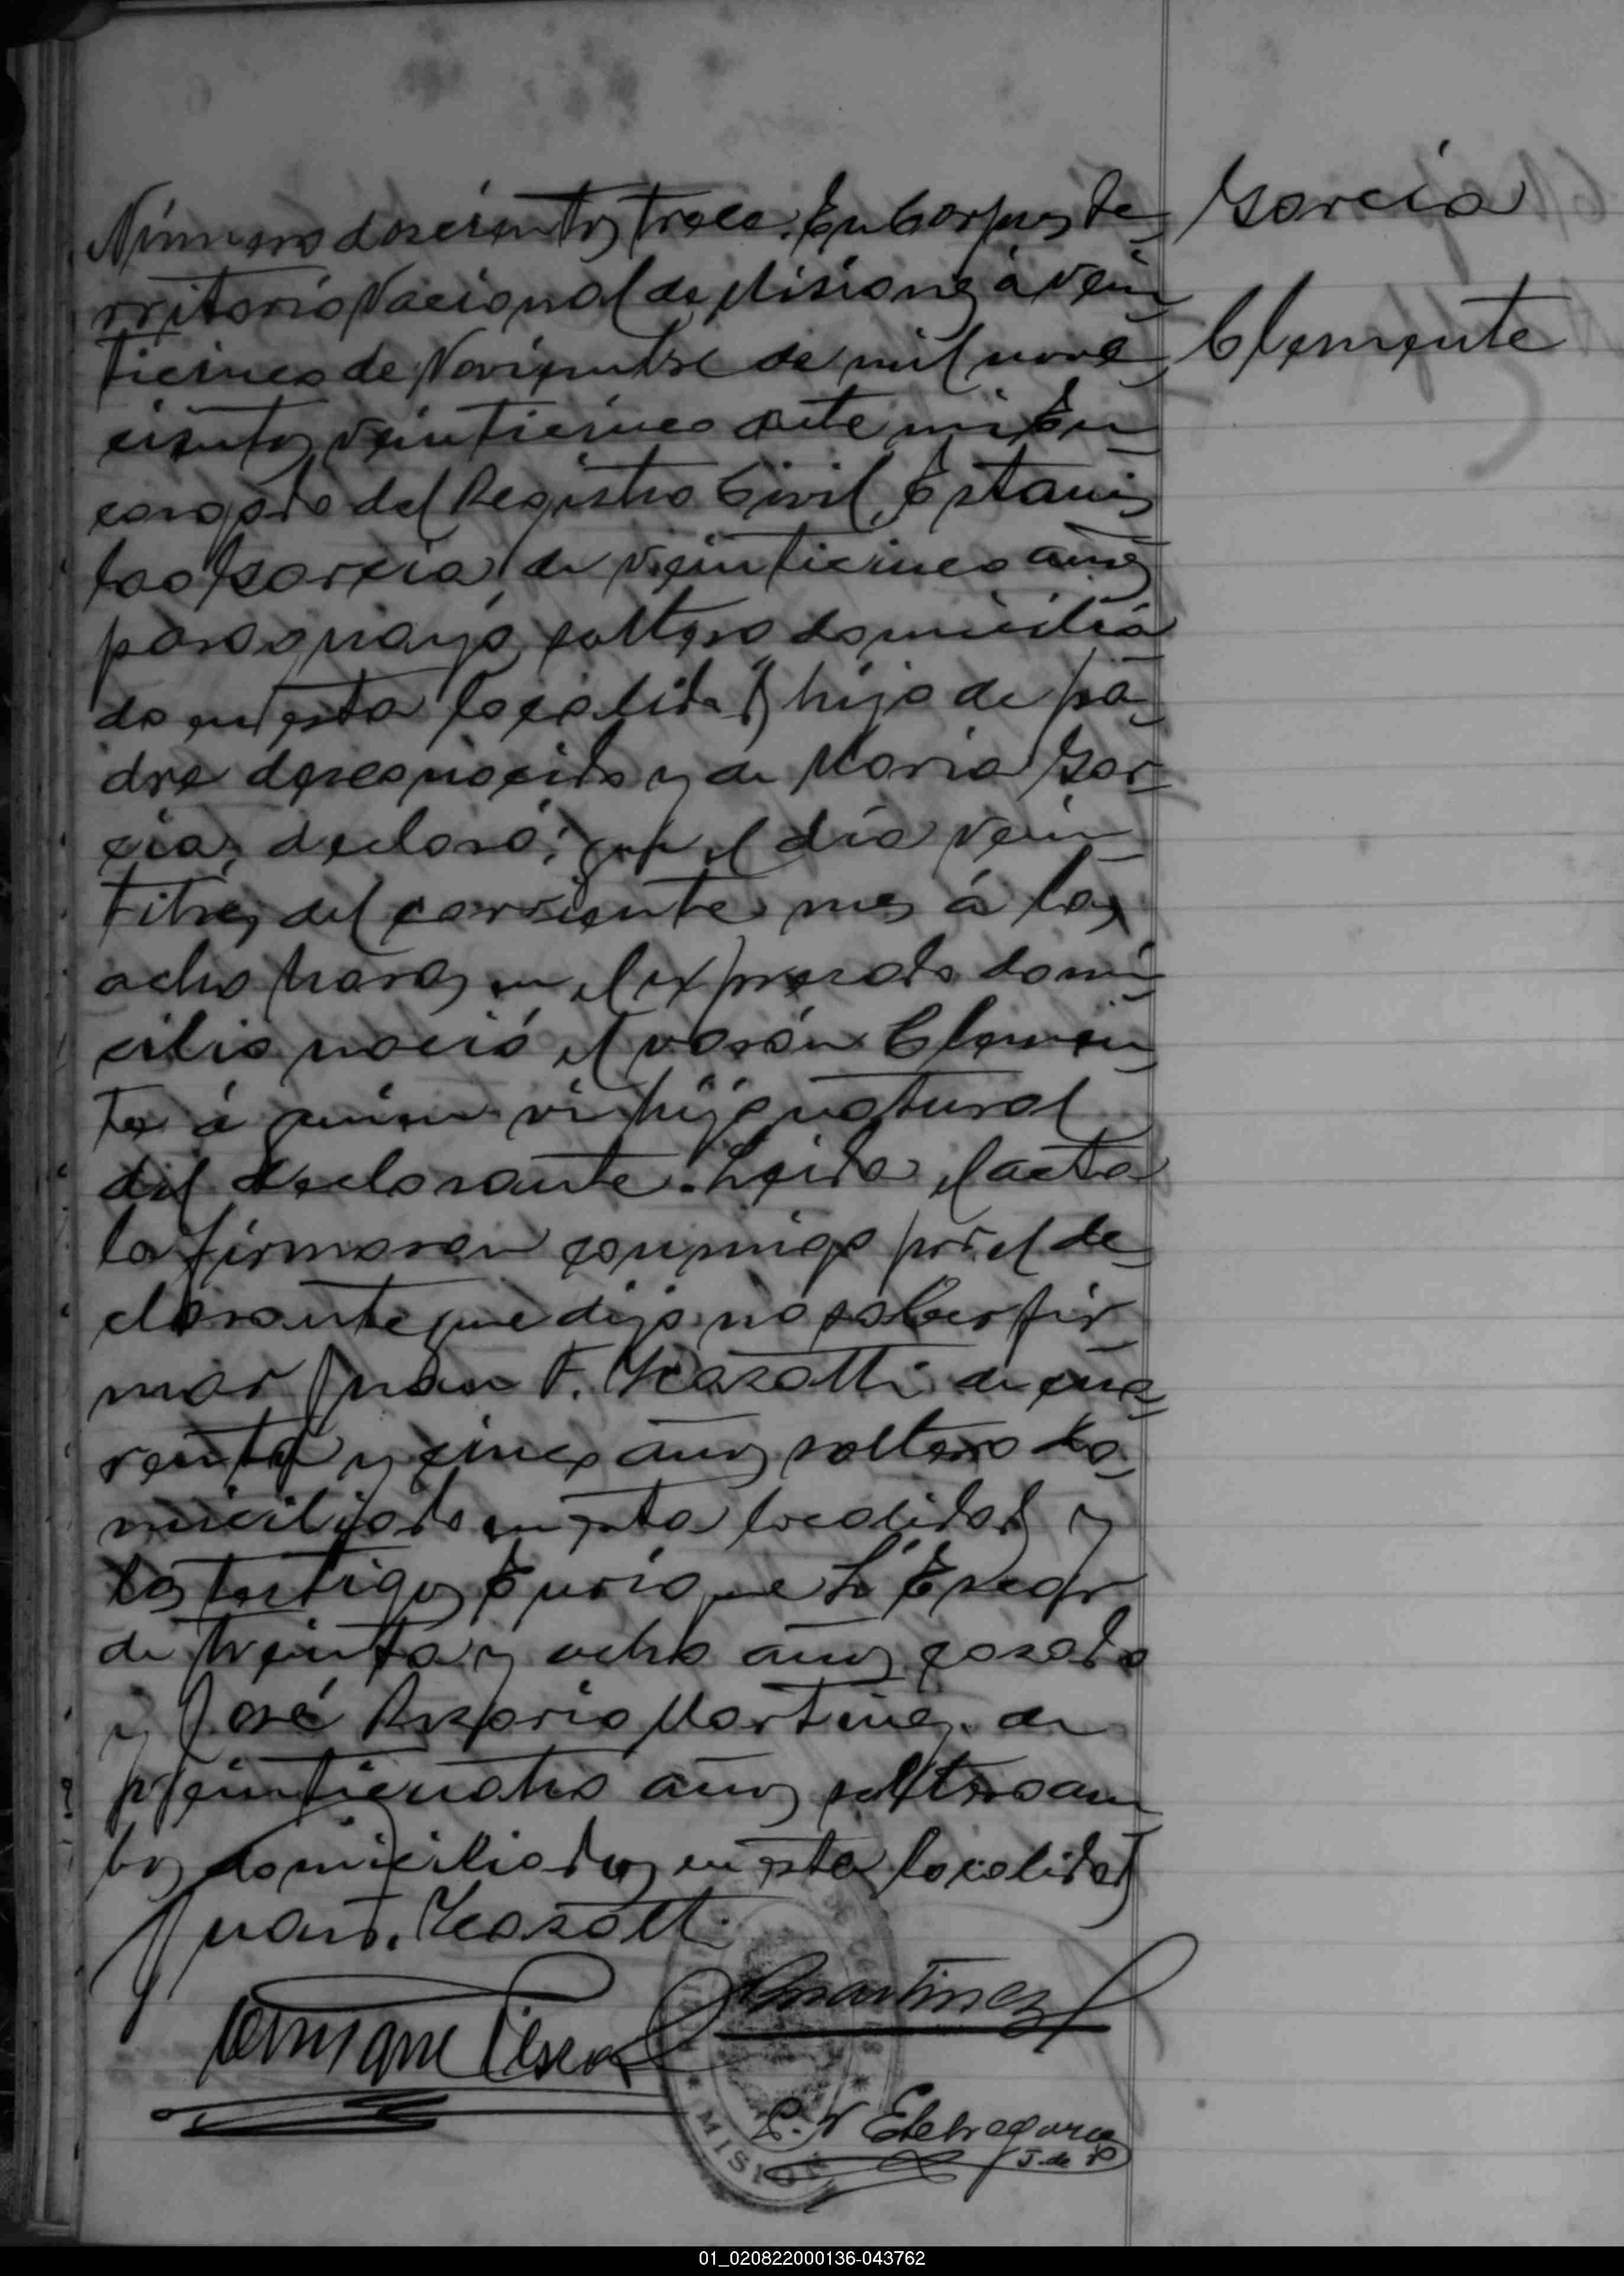 Número doscientos trece. En Corpus te-
rritorio Nacional de Misiones á vein-
ticinco de Noviembre de mil nove-
cientos veinticinco ante mi En-
cargado del Registro Civil, Estanis-
lao Garcia, de veinticinco años
paraguayo, soltero domicilia-
do en esta localidad, hijo de pa-
dre desconocido y de Maria Gar-
cia, declaró: que el día vein-
titrés del corriente mes á las
ocho horas en el expresado domi-
cilio nació el varón Clemen-
te á quien vi hijo natural
del declarante. Leida el acta
la firmaron conmigo por el de-
clarante que dijo no saber fir-
mar Juan F. de cua-
renta y cinco años soltero do-
miciliado en esta localidad y
los testigos Enrique
de treinta y ocho años casado
y José Martinez de
veinticuatro años soltero am-
bos domiciliados en esta localidad
Juan F.
Martinez
Enrique
MISIONES
P. N Etchegaray
J. de P
Garcia
Clemente
01_020822000136-043762